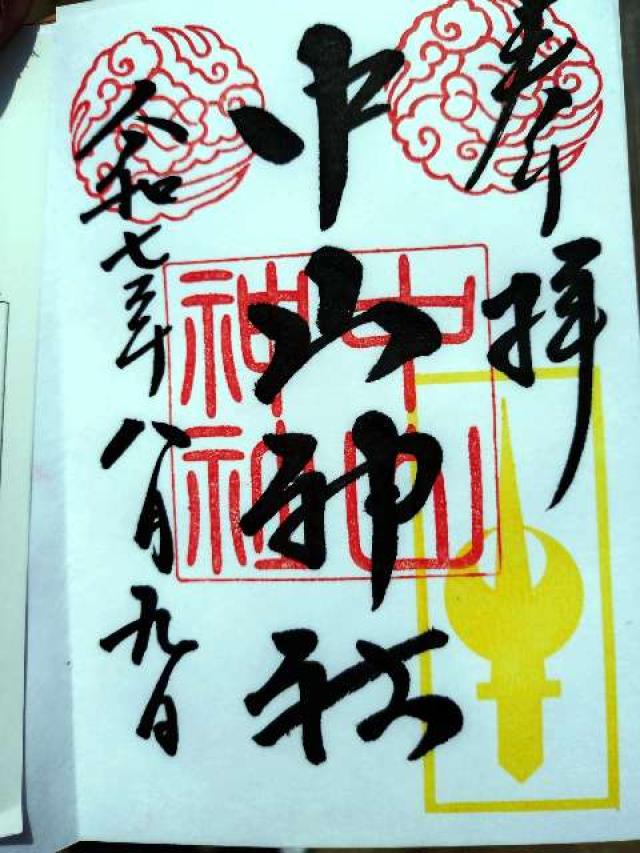 奉拝
中山神社
中山神社
令和七年八月九日